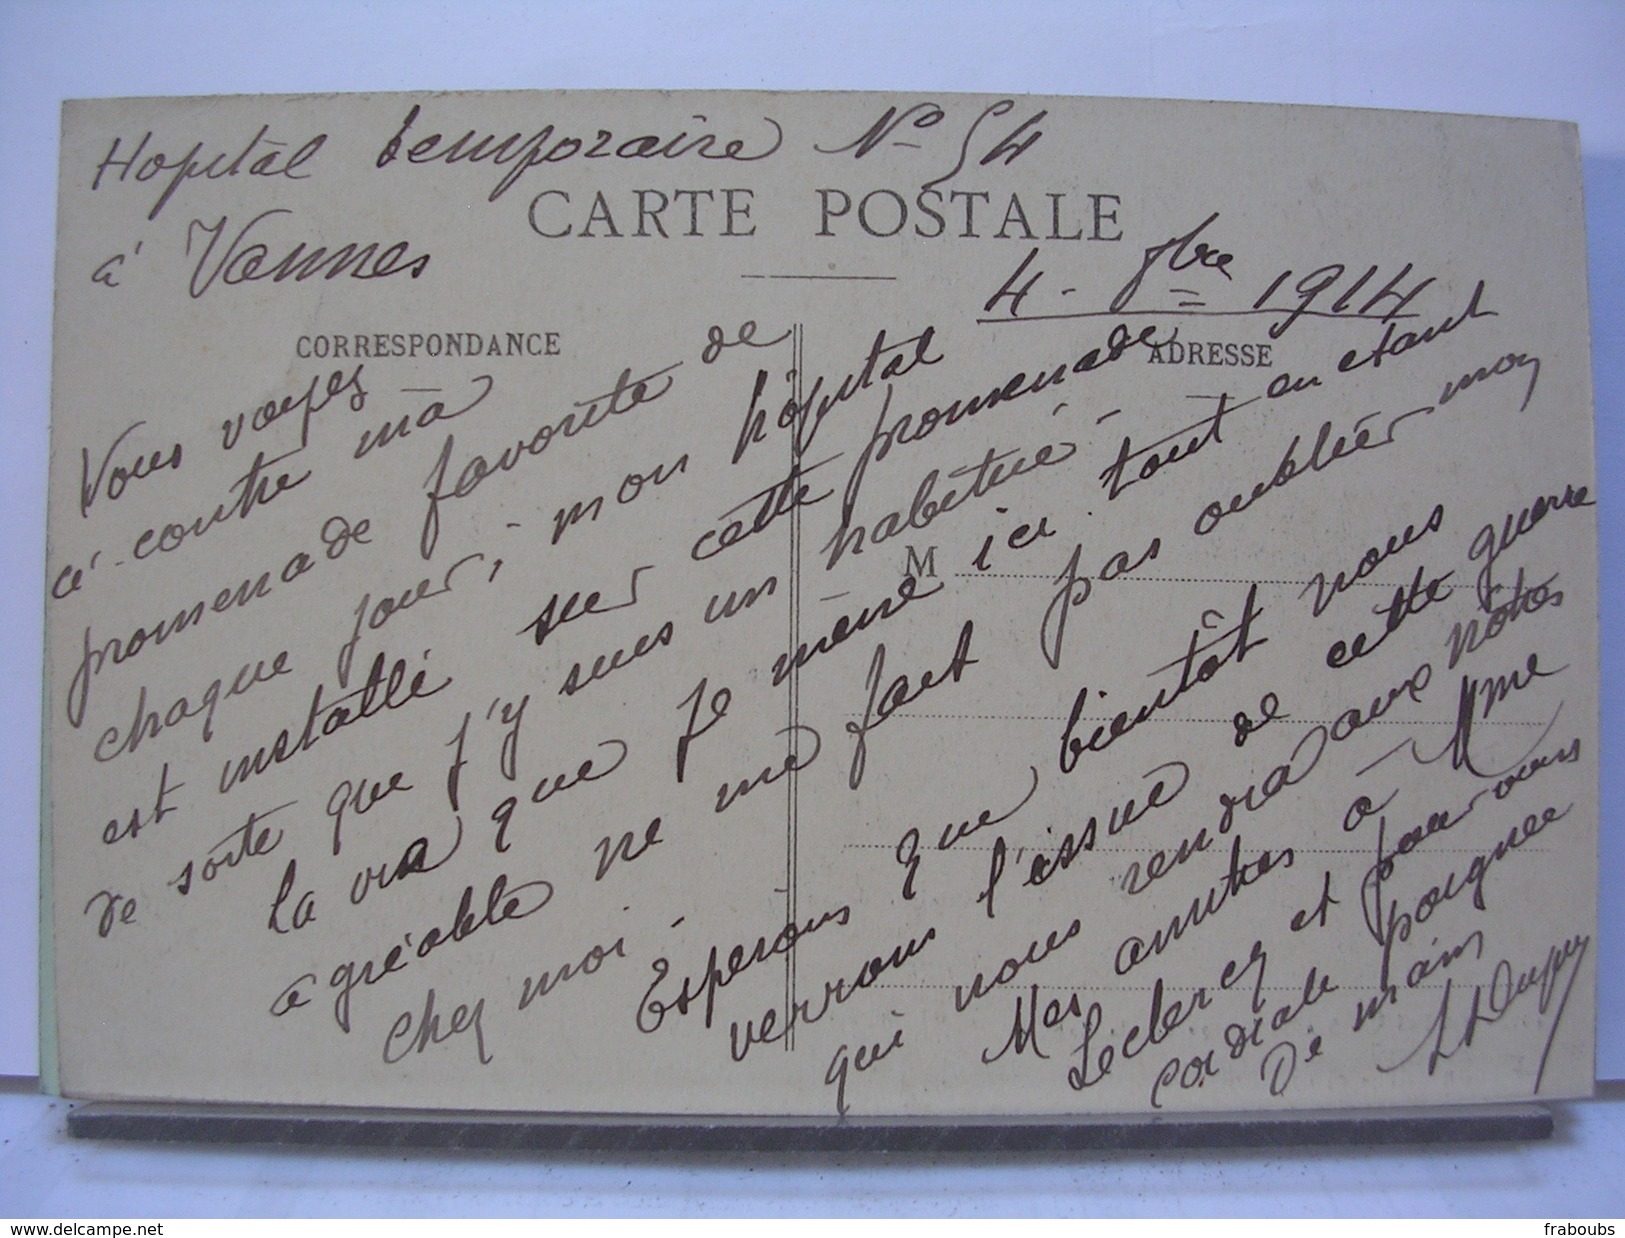 Hopital temporaire No 54
à Vannes
CARTE POSTALE
4 - 9bre 1914
CORRESPONDANCE
ADRESSE
M
Vous voyez
ci-contre ma
promenade favorite de
chaque jour, mon hôpital
est installé sur cette promenade
de sorte que j'y suis un habitué -
La vie que je mène ici tout en étant
agréable ne me fait pas oublier mon
chez moi -
Esperons que bientôt nous
verrons l'issue de cette guerre
qui nous rendra aux nôtres
Mes amitiés à Mme
Leclercq et pour vous
cordiale poignée
de main
fraboubs
www.delcampe.net